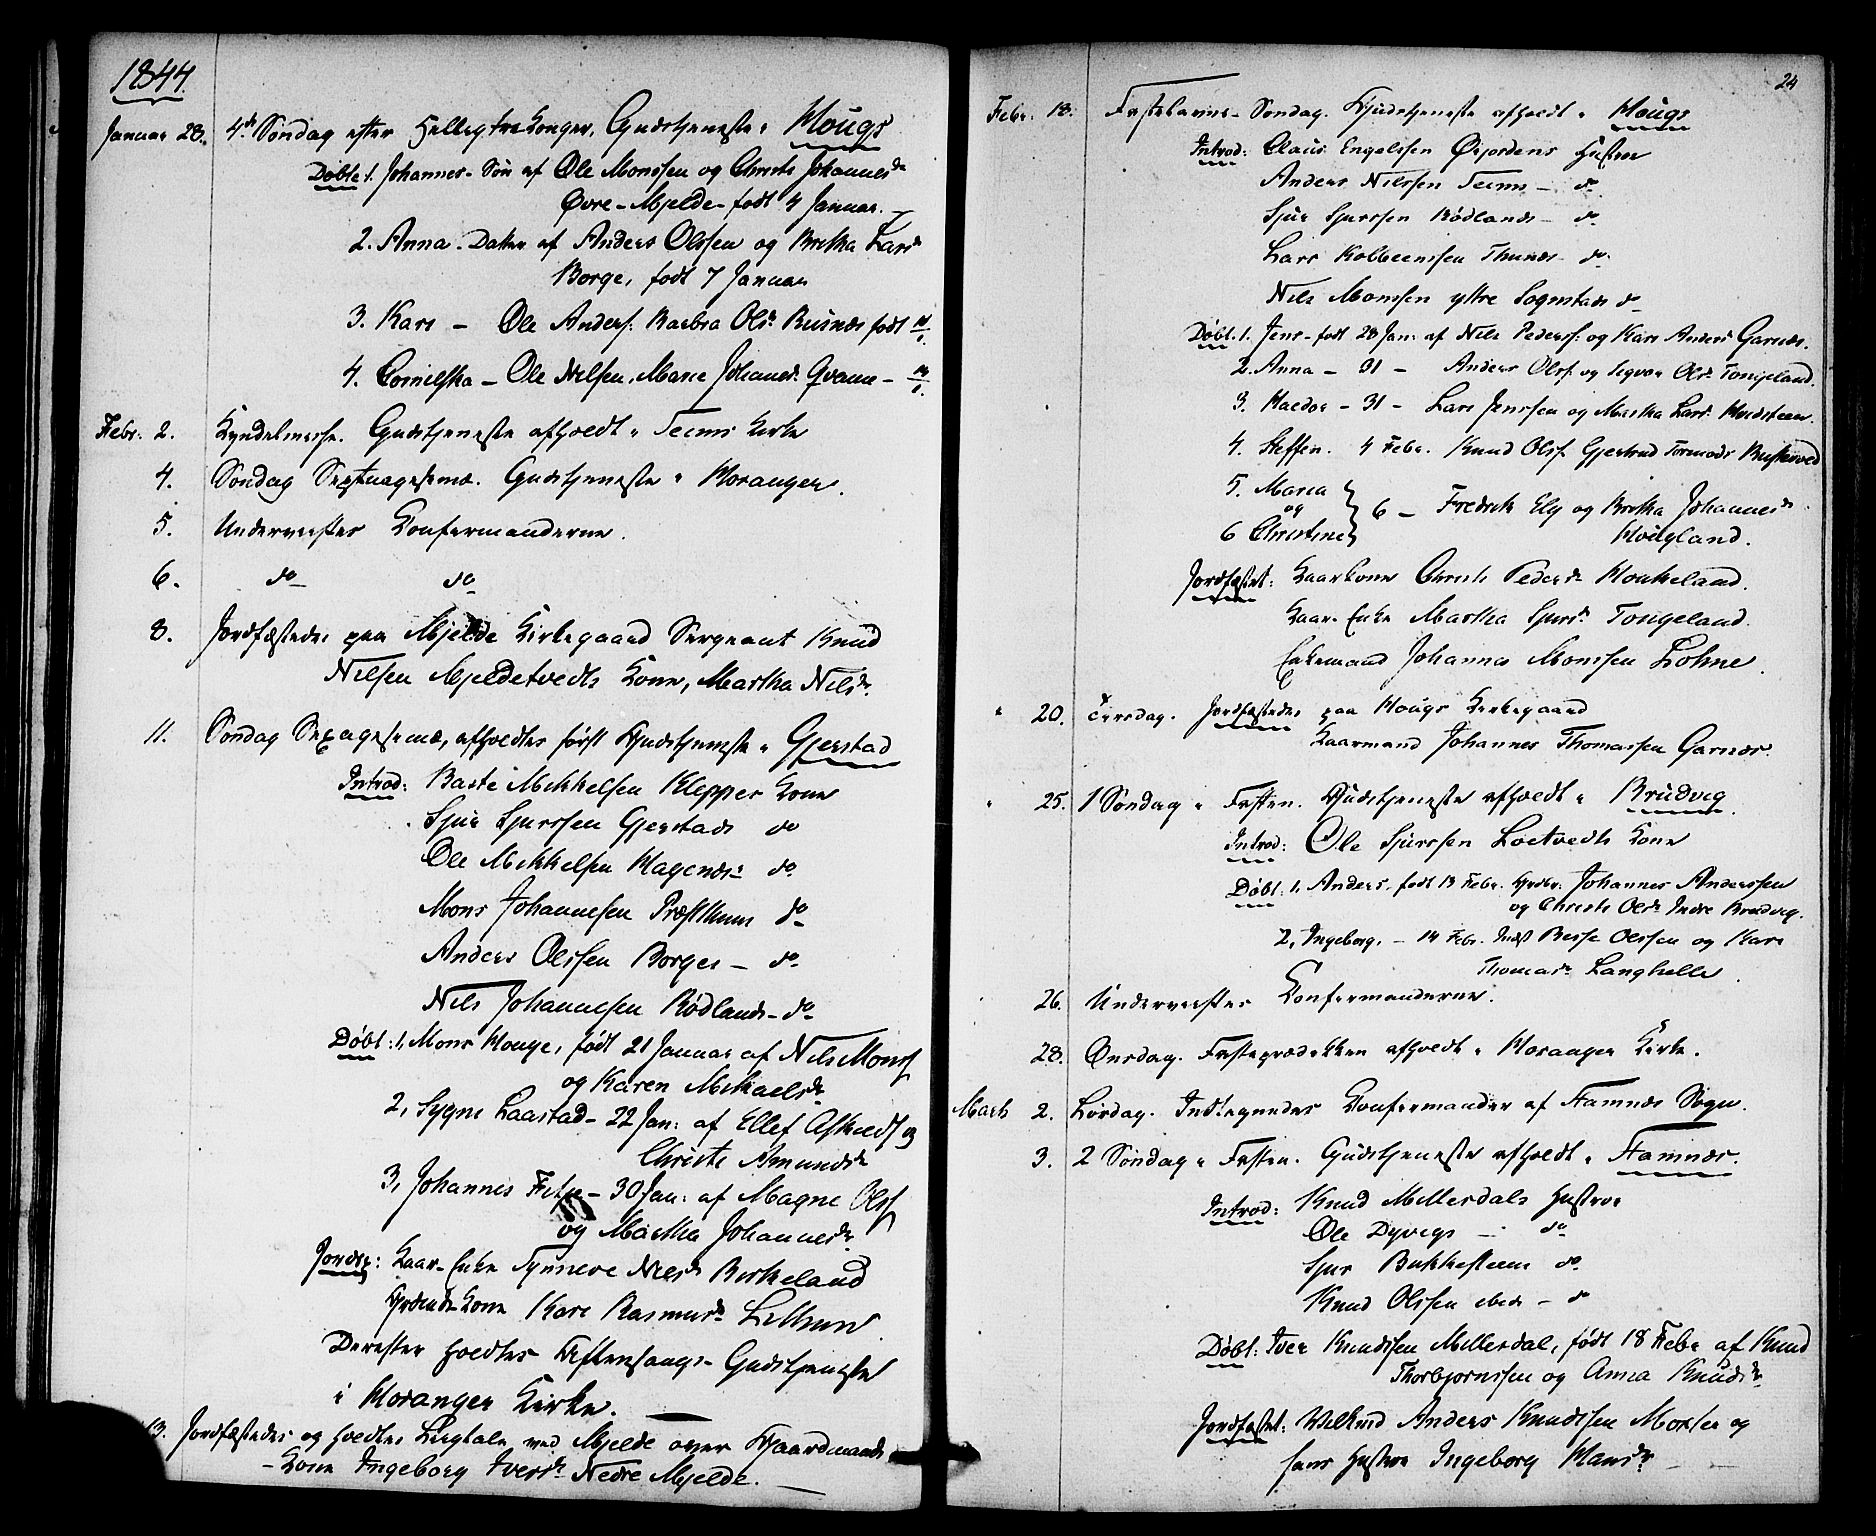 1844.
Januar 28. 4de Søndag efter Hellig tre Konger, Gudstjeneste i Hougs
Døbte 1. Johannes - Søn af Ole Monssen og Christi Johannesdr
Øvre-Mjelde - født 4 Januar. -
2. Anna. Datter af Anders Olssen og Britha Larsdr
Borge, født 7 Januar
3. Kari - Ole Anders: Barbra Olsdr Busnæs født
4. Cornelska - Ole Nilsen, Marie Johannesdr Qvamme -
Febr: 2. Kyndelmesse. Gudstjeneste afholdt i Kirke
4. Søndag Septuagesimæ. Gudstjeneste i Horanger.
5. Underviistes Confirmanderne.
6. do do
8. Jordfæstedes paa Mjelde Kirkegaard Sergeant Knud
Nilsen Mjeldetvedts Kone, Martha Nilsdr.
11. Søndag Sexagesimæ, afholdtes først Gudstjeneste i Gjerstad
Introd: Baste Mikkelsen Klepper Kone
Sjur Sjurssen Gjerstads do
Ole Mikkelsen Hagenæs do
Mons Johannesen Præsthuun do
Anders Olssen Borges - do
Nils Johannesen Rødlands - do
Døbt: 1, Mons Houge, født 21 Januar af Nils Monss
og Karen Mikaelsdr
2, Sygni Laastad - 22 Jan: af Ellef og
Christi Amundsdr
3, Johannes - 30 Jan: af Magne Olss
og Martha Johannesdr.
Jordf: Kaar-Enke Synneve Nilsdr Birkeland
Kone Kari Rasmusdr
Derefter holdtes Aftensangs-Gudstjeneste
i Horanger Kirke.
13. Jordfæstedes og holdtes Liigtale ved Mjelde over Gaardmands
- Kone Ingeborg Iversdr Nedre Mjelde.
24
Febr. 18. Fastelavns-Søndag. Gudstjeneste afholdt i Hougs
Introd: Claus Engelssen Øijordens Hustru
Anders Nilssen - do
Sjur Sjurssen Rødlands - do
Lars Kolbeenssen Thunæs - do
Nils Monssen ytre Sognstads do
Døbt. 1. Jens - født 28 Jan: af Nils Pederss: og Kari Andersdr Garnæs.
2. Anna - 31 - Anders Olss. og Sygva Olsdr Tongeland.
3. Haldor - 31 - Lars Jenssen og Martha Larsdr Hvidsteen.
4. Steffen. 4 Febr. Knud Olss. Gjertrud Tormodsdr
5. Maria
og
6 Christine } 6 - Fredrik Ely og Britha Johannesdr
Hougland.
Jordfæstet: Kaarkone Christi Pedersdr Houkeland.
Kaar-Enke Martha Sjursdr Tongeland.
Enkemand Johannes Monssen Lohne.
" 20. Tirsdag. Jordfæstedes paa Hougs Kirkegaard
Kaarmand Johannes Thomassen Garnæs.
" 25. 1 Søndag i Fasten. Gudstjeneste afholdt i Brudvig.
Introd: Ole Sjurssen Loetvedts Kone
Døbt: 1, Anders, født 13 Febr. Johannes Anderssen
og Christi Olsdr Indre Brudvig.
2, Ingeborg, - 14 Febr. Besse Olssen og Kari
Thomasdr Langhelle.
26. Underviistes Confirmanderne.
28. Onsdag. Fasteprædikken afholdt i Horanger Kirke.
Marts 2. Lørdag. Indtegnedes Confirmander af Hamnæs Sogn.
3. 2 Søndag i Fasten. Gudstjeneste afholdt i Hamnæs.
Introd: Knud Millesdals Hustru
Ole Dyvigs - do
Sjur Bukkesteens do
Knud Olssen ibids - do
Døbt: Iver Knudssen Millesdal, født 18 Febr af Knud
Thorbjørnssen og Anna Knudsdr
Jordfæstet: Anders Knudssen og
hans Hustru Ingeborg Hansdr